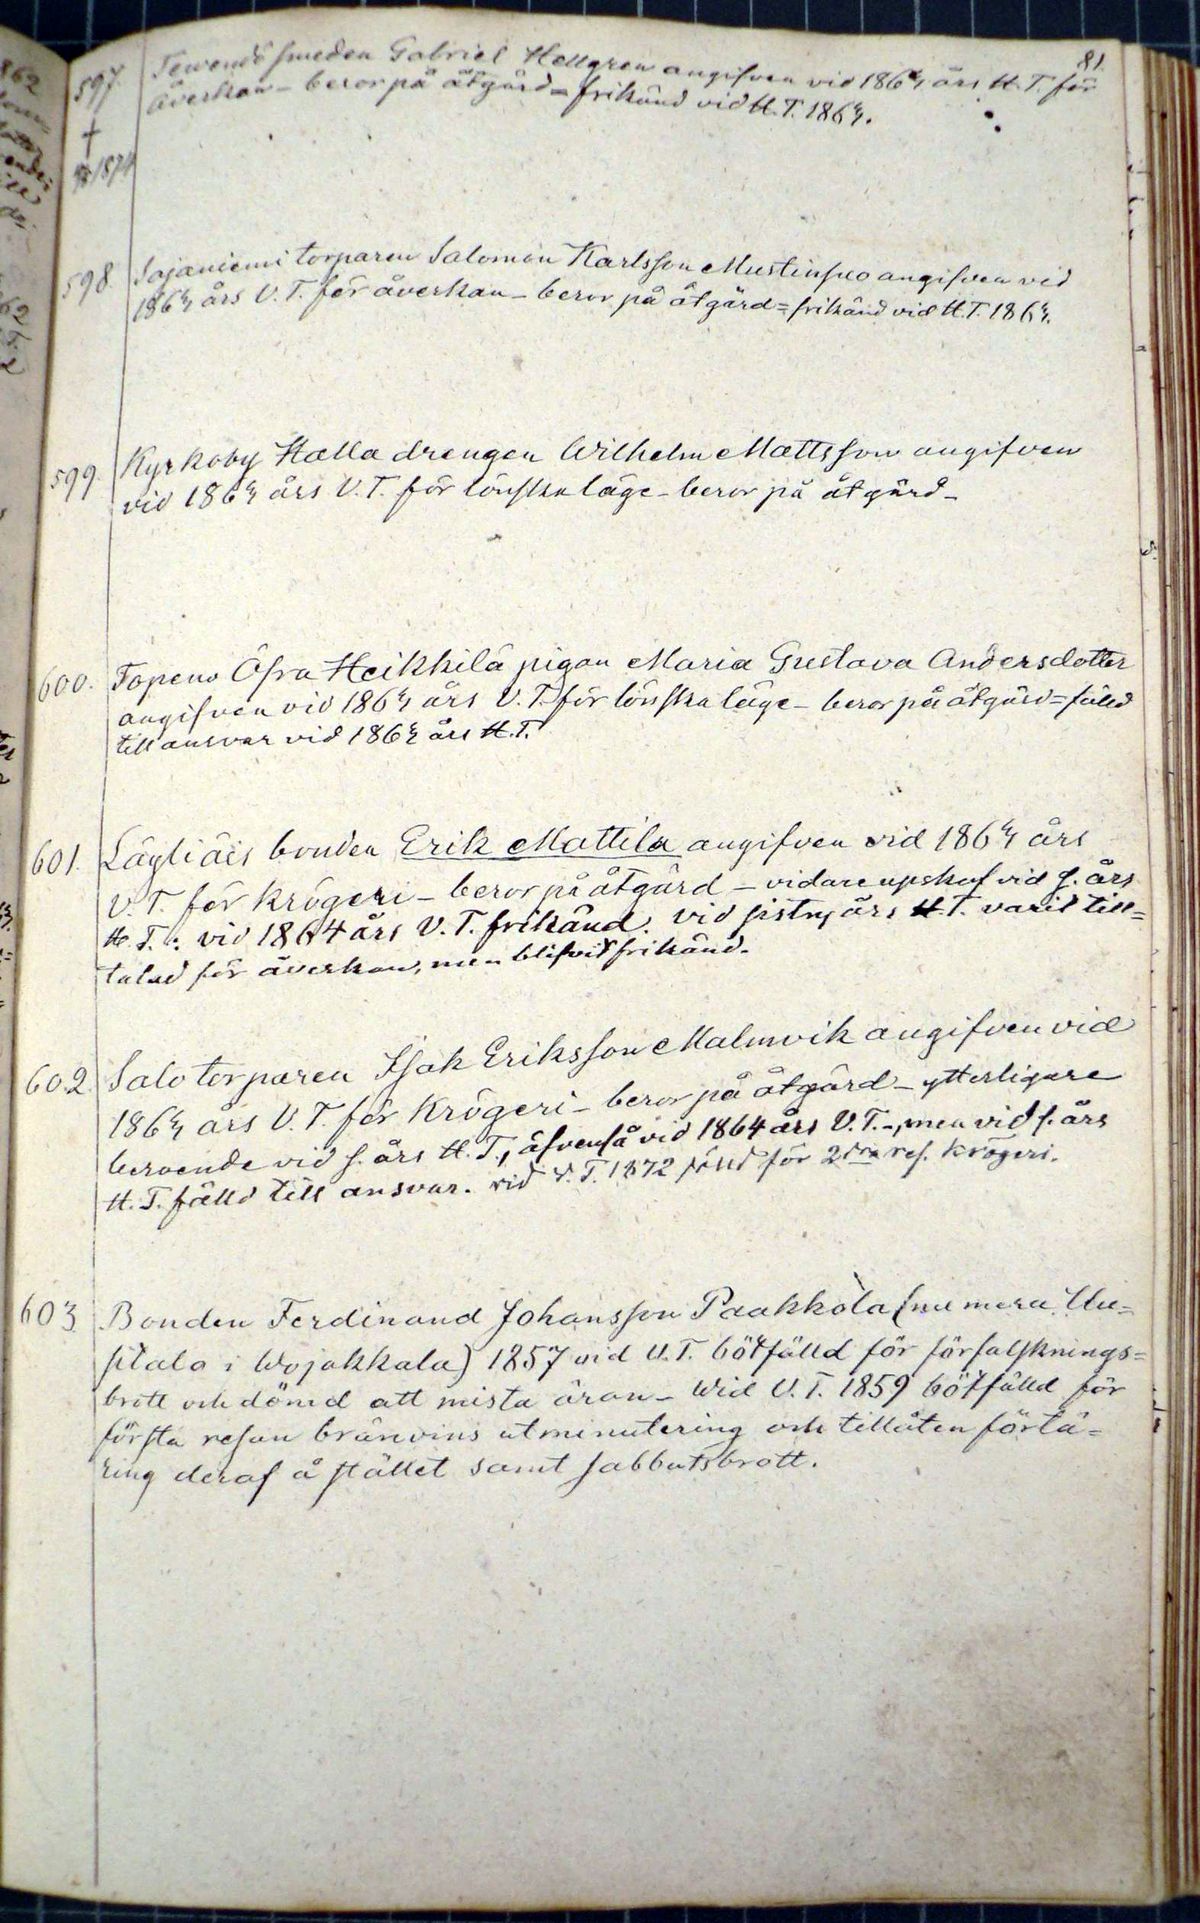 81.
597. Tewendö smeden Gabriel Hellgren angifven vid 1863 års H. T. för
åverkan - beror på åtgärd = frikänd vid H. T. 1863.
†
1874
598. Sajaniemi torparen Salomon Karlsson Mustinsuo angifven vid
1863 års V. T. för åverkan - beror på åtgärd = frikänd vid H. T. 1863.
599. Kyrkoby Hella drengen Wilhelm Mattsson angifven
vid 1863 års V. T. för lönska läge - beror på åtgärd -
600. Topeno Öfra Heikkilä pigan Maria Gustava Andersdotter
angifven vid 1863 års V. T. för lönska läge - beror på åtgärd = fälld
till ansvar vid 1863 års H. T.
601. Läyliäis bonden Erik Mattila angifven vid 1863 års
V. T. för krögeri - beror på åtgärd - vidare upskof vid s. års
H. T.: vid 1864 års V. T. frikänd. vid sistn. års H. T. varit till=
talad för åverkan, men blifvit frikänd.
602. Salo torparen Isak Eriksson Malmvik angifven vid
1863 års V. T. för krögeri - beror på åtgärd - ytterligare
beroende vid s. års H. T., äfvenså vid 1864 års V. T. -, men vid s. års
H. T. fälld till ansvar. vid V. T. 1872 fälld för 2dra res. krögeri.
603. Bonden Ferdinand Johansson Paakkola (nu mera Uu=
sitalo i Wojakkala) 1857 vid V. T. bötfälld för förfalsknings=
brott och dömd att mista äran - Wid V. T. 1859 bötfälld för
första resan bränvins utminutering och tillåten förtä=
ring deraf å stället samt sabbatsbrott.